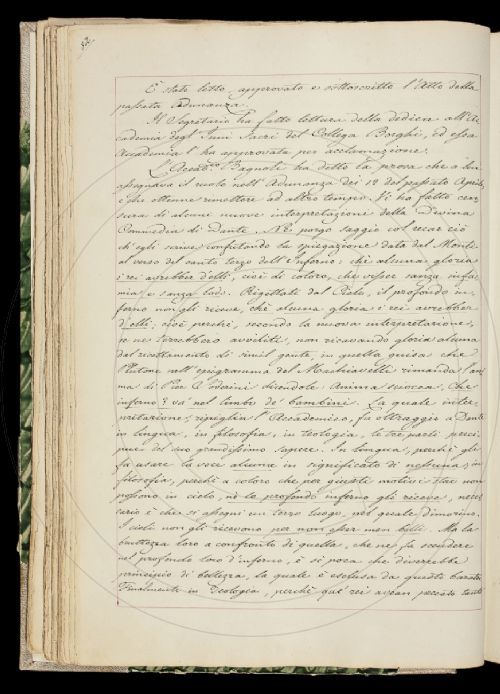 82.
È stato letto, approvato e sottoscritto l'Atto della
passata Adunanza.
Il Segretario ha fatto lettura della dedica all'Ac-
cademia degl'Inni Sacri del Collega Borghi, ed essa
Accademia l'ha approvata per acclamazione.
L'Accad.co Bagnoli ha detto la prosa che a lui
assegnava il ruolo nell'Adunanza dei 12 del passato Aprile,
e che ottenne rimettere ad altro tempo. Vi ha fatto cen-
sura di alcune nuove interpretazione della Divina
Commedia di Dante. Ne porgo saggio col recar ciò
ch'egli scrive confutando la spiegazione data dal Monti
al verso del canto terzo dell'Inferno: che alcuna gloria
i rei avrebber d'elli, cioè di coloro, che visser sanza infa-
mia e sanza lodo. Rigettati dal Cielo, il profondo in-
ferno non gli riceve, che alcuna gloria i rei avrebber
d'elli, cioè perchè, secondo la nuova interpretazione,
se ne terrebbero avviliti, non ricavando gloria alcuna
dal ricettamento di simil gente, in quella guisa che
Plutone nell'epigramma del Machiavelli rimanda l'ani-
ma di Pier Soderini dicendole: Anima sciocca, Che
inferno? va' nel limbo de' bambini. La quale inter-
pretazione, ripiglia l'Accademico, fa oltraggio a Dante
in lingua, in filosofia, in teologia, le tre parti preci-
pue del suo grandissimo sapere. In lingua, perchè gli
fa usare la voce alcuna in significato di nessuna; in
filosofia, perchè a coloro che per questi motivi stare non
possono in cielo, nè lo profondo inferno gli riceve, neces-
sario è che si assegni un terzo luogo, nel quale dimorino.
I cieli non gli ricevono per non esser men belli. Ma la
bruttezza loro a confronto di quella, che ne fa scendere
nel profondo loro d'inferno, è sì poca che diverrebbe
principio di bellezza, la quale è esclusa da questo baratro.
Finalmente in Teologia, perchè que' rei avean peccato tanto